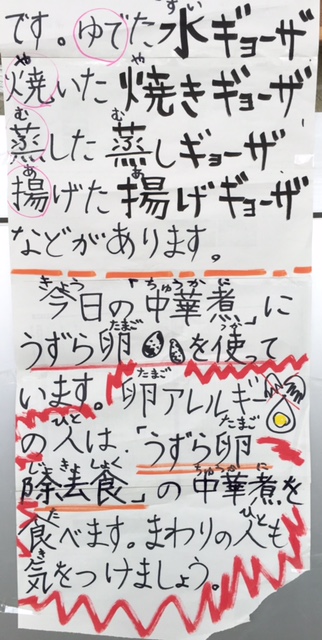 です。ゆでた水ギョーザ
焼いた 焼きギョーザ
蒸した 蒸しギョーザ
揚げた 揚げギョーザ
などがあります。
今日の「中華煮」に
うずら卵を使って
います。卵アレルギー
の人は、「うずら卵
除去食」の中華煮を
食べます。まわりの人も
気をつけましょう。